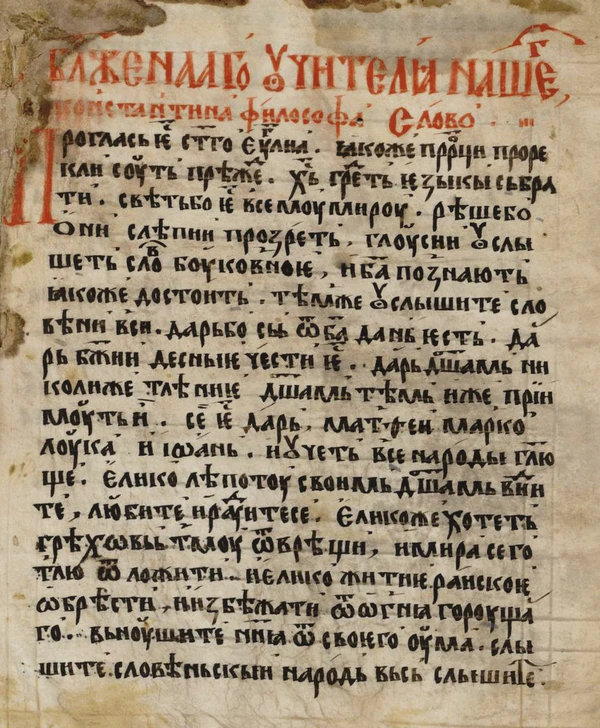 блж҃енааго ꙋчителꙗ нашег҃,
константина философа слово ·
Прогласъ ѥ҃ ст҃го еѵⷢ҇лиа · ꙗкоже прⷪ҇рци прорѣ
кли соуть прѣжⷣе · хⷭ҇ь греⷣть ѥзыкы събра
ти · свѣтьбо ѥ҃ всемоу мироу · рѣше бо
ѡни слѣпии прозреть · глоусии ꙋслы
шеть словⷪ боуковноѥ, и ба҃ познають
ꙗкоже достоить · тѣмже ꙋслышите сло
вѣни вси · дарь бо сы ѿ ба҃ дань ѥсть · да
рь бж҃ии десныѥ чести ѥ҃ · дарь дш҃амь ни
колиже тлѣниѥ дш҃амь тѣмь иже прии
моуть и · се ѥ҃ дарь · матѳеи марко
лоука и іѡань · иꙋчеть все народы гл҃ю
ще · елико лѣпотоу своимь дш҃амь види
те, любите и радⷣитесе · еликоже хотеть
грѣховьь тмоу ѿврѣщи, и мира сего
тлю ѿложити · и елико житиѥ раискоѥ
ѡбрѣсти, и избѣжати ѿ ѡгнꙗ гороуща
го · вьноушите нн҃ꙗ ѿ своѥго оума · слы
шите словѣньскыи народь вьсь слышите ·